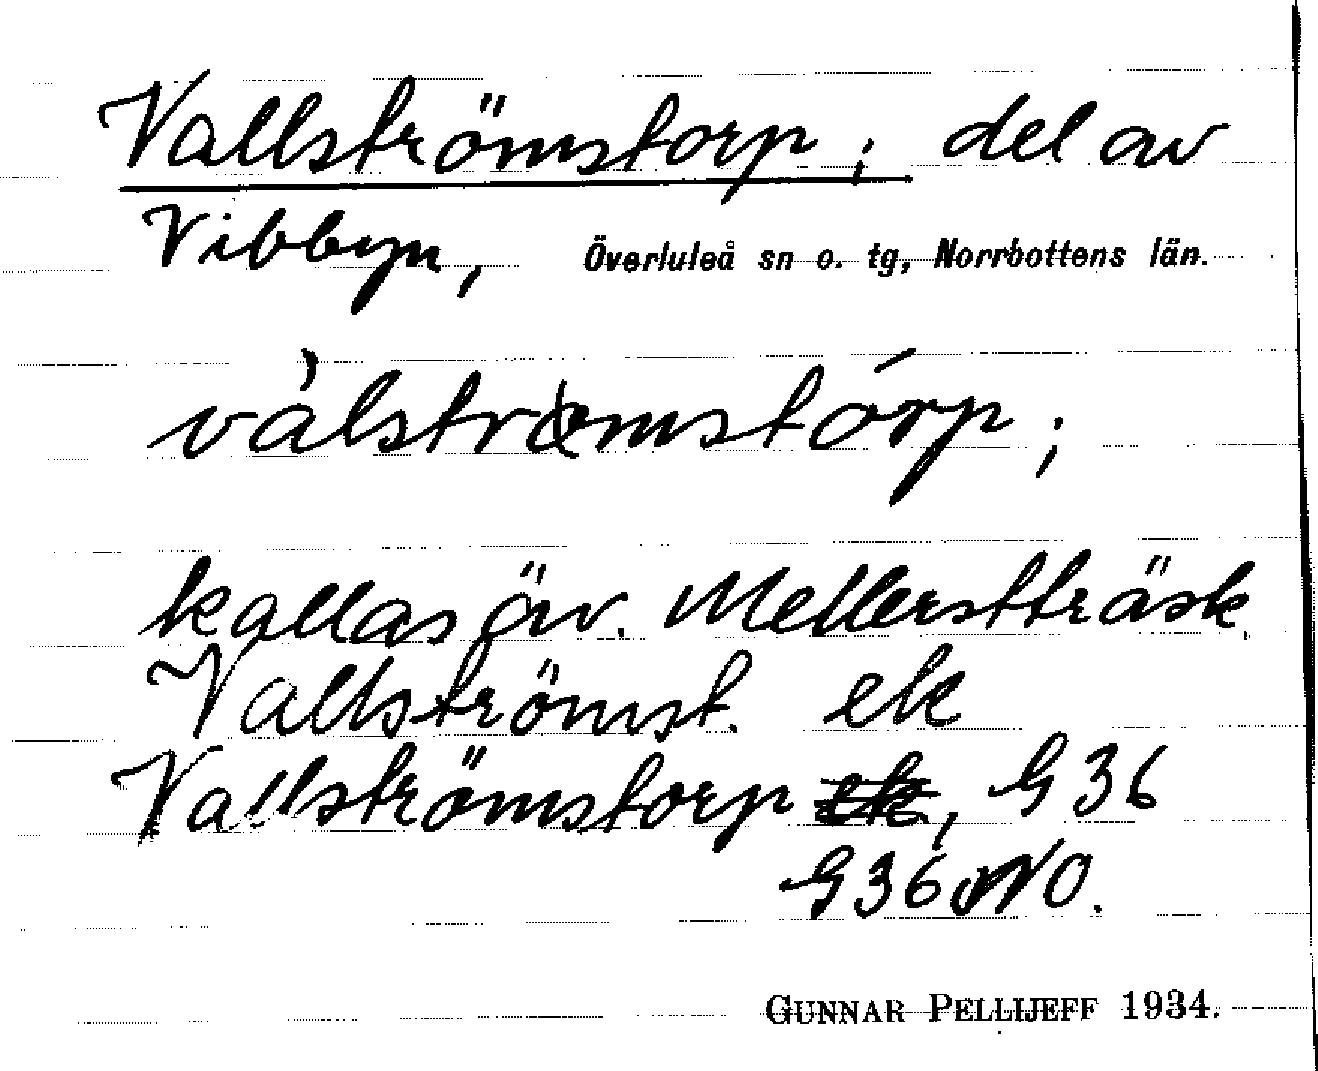 Vallströmstorp; del av
Vibbyn, Överluleå sn o. tg, Norrbottens län.
vàlstrømstórp;
kallas äv. Mellerstträsk.
Vallströmst. ek
Vallströmstorp ek, G36
G36 NO.
GUNNAR PELLIJEFF 1934.